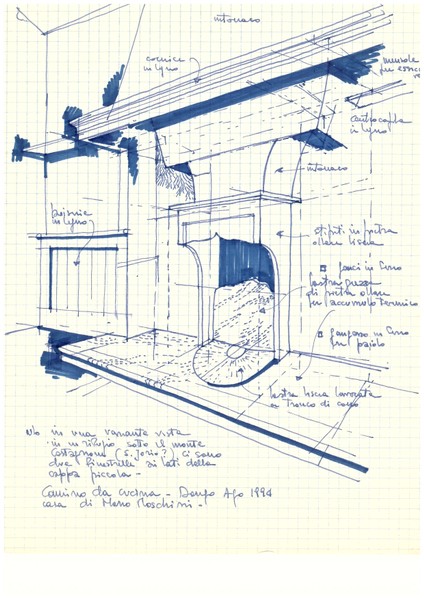 intonaco
cornice
in legno
mensole
per essicc
controcappa
in legno
intonaco
in legno
stipiti in pietra
ollare liscia
ganci in ferro
lastra grezza
di pietra ollare
per l'accumulo termico
in ferro
per paiolo
lastra liscia lavorata
a tronco di cono
nb in una variante vista
in un rifugio sotto il monte
(S. Jorio?) ci sono
due finestrelle ai lati della
cappa piccola -
Camino da cucina - Ago 1994
casa di